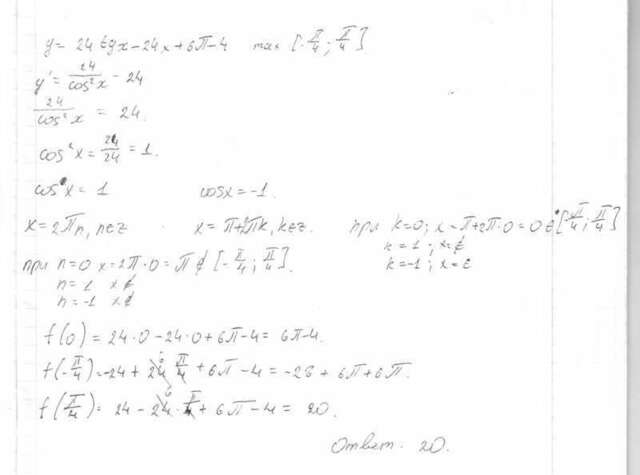 y = 24 tgx - 24x + 6π - 4 max [-π/4; π/4]
y' = 24/cos²x - 24
24/cos²x = 24.
cos²x = 24/24 = 1.
cosx = 1 cosx = -1.
x = 2πn, n∈z x = π + 2πk, k∈z. при k=0; x = π+2π·0 = 0 ∈ [-π/4; π/4]
k = 1; x = ∉
k = -1; x = ∈
при n=0 x = 2π·0 = π ∉ [-π/4; π/4].
n = 1 x ∉
n = -1 x ∉
f(0) = 24·0 - 24·0 + 6π - 4 = 6π - 4.
f(-π/4) = -24 + 24 π/4 + 6π - 4 = -28 + 6π + 6π.
f(π/4) = 24 - 24·π/4 + 6π - 4 = 20.
Ответ. 20.